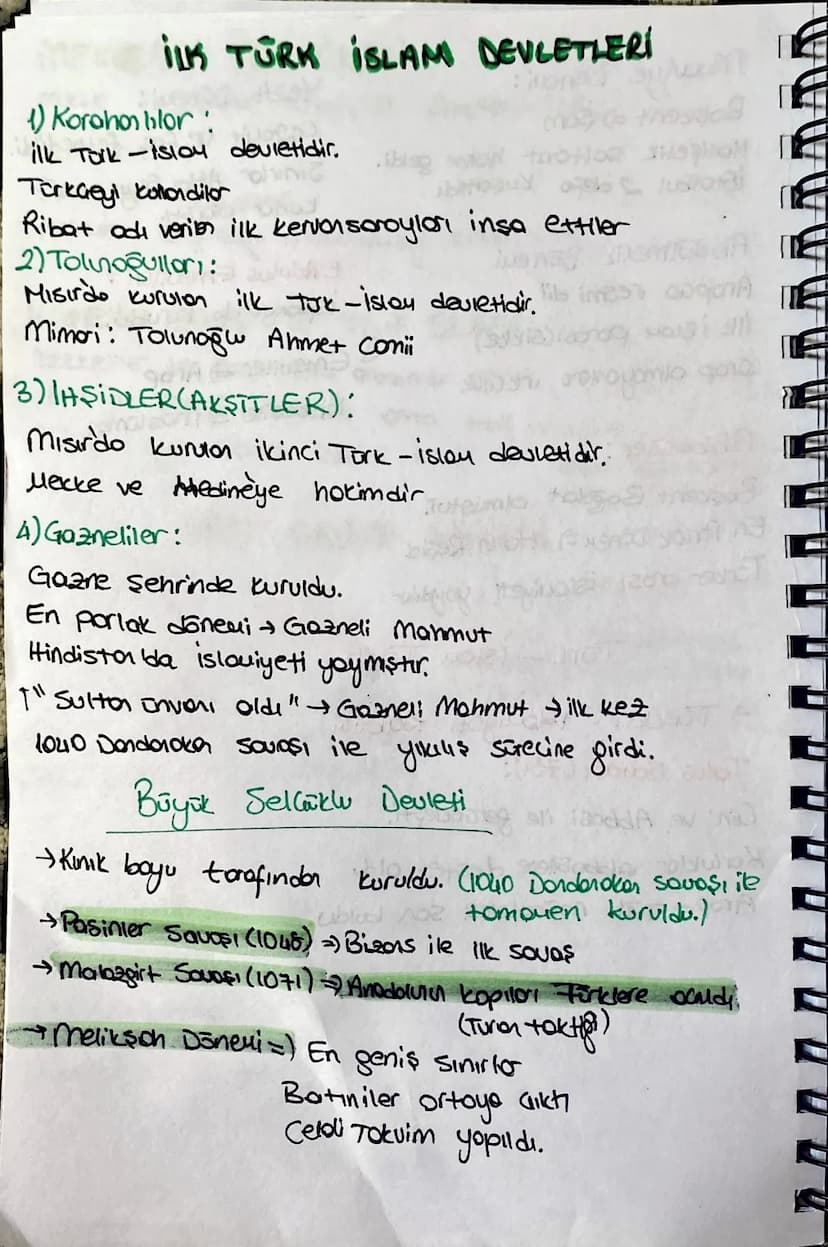 İLK TÜRK İSLAM DEVLETLERİ
1) Karahanlılar :
İlk Türk - İslam devletidir.
Türkçeyi kullandılar
Ribat adı verilen ilk kervansarayları inşa ettiler
2) Tolunoğulları :
Mısır'da kurulan ilk Türk - İslam devletidir.
Mimari : Tolunoğlu Ahmet Camii
3) IHŞİDLER (AKŞİTLER) :
Mısır'da kurulan ikinci Türk - İslam devletidir.
Mekke ve Medine'ye hakimdir
4) Gazneliler :
Gazne şehrinde kuruldu.
En parlak dönemi → Gazneli Mahmut
Hindistan'da islamiyeti yaymıştır.
↑" Sultan ünvanı aldı" → Gazneli Mahmut → ilk kez
1040 Dandanakan savaşı ile yıkılış sürecine girdi.
Büyük Selçuklu Devleti
→ Kınık boyu tarafından kuruldu. (1040 Dandanakan savaşı ile
tamamen kuruldu.)
→ Pasinler Savaşı (1048) ⇒ Bizans ile ilk savaş
→ Malazgirt Savaşı (1071) ⇒ Anadolunun kapıları Türklere açıldı.
(Turan taktiği)
→ Melikşah Dönemi ⇒ En geniş sınırlar
Batıniler ortaya çıktı
Celali Takvim yapıldı.